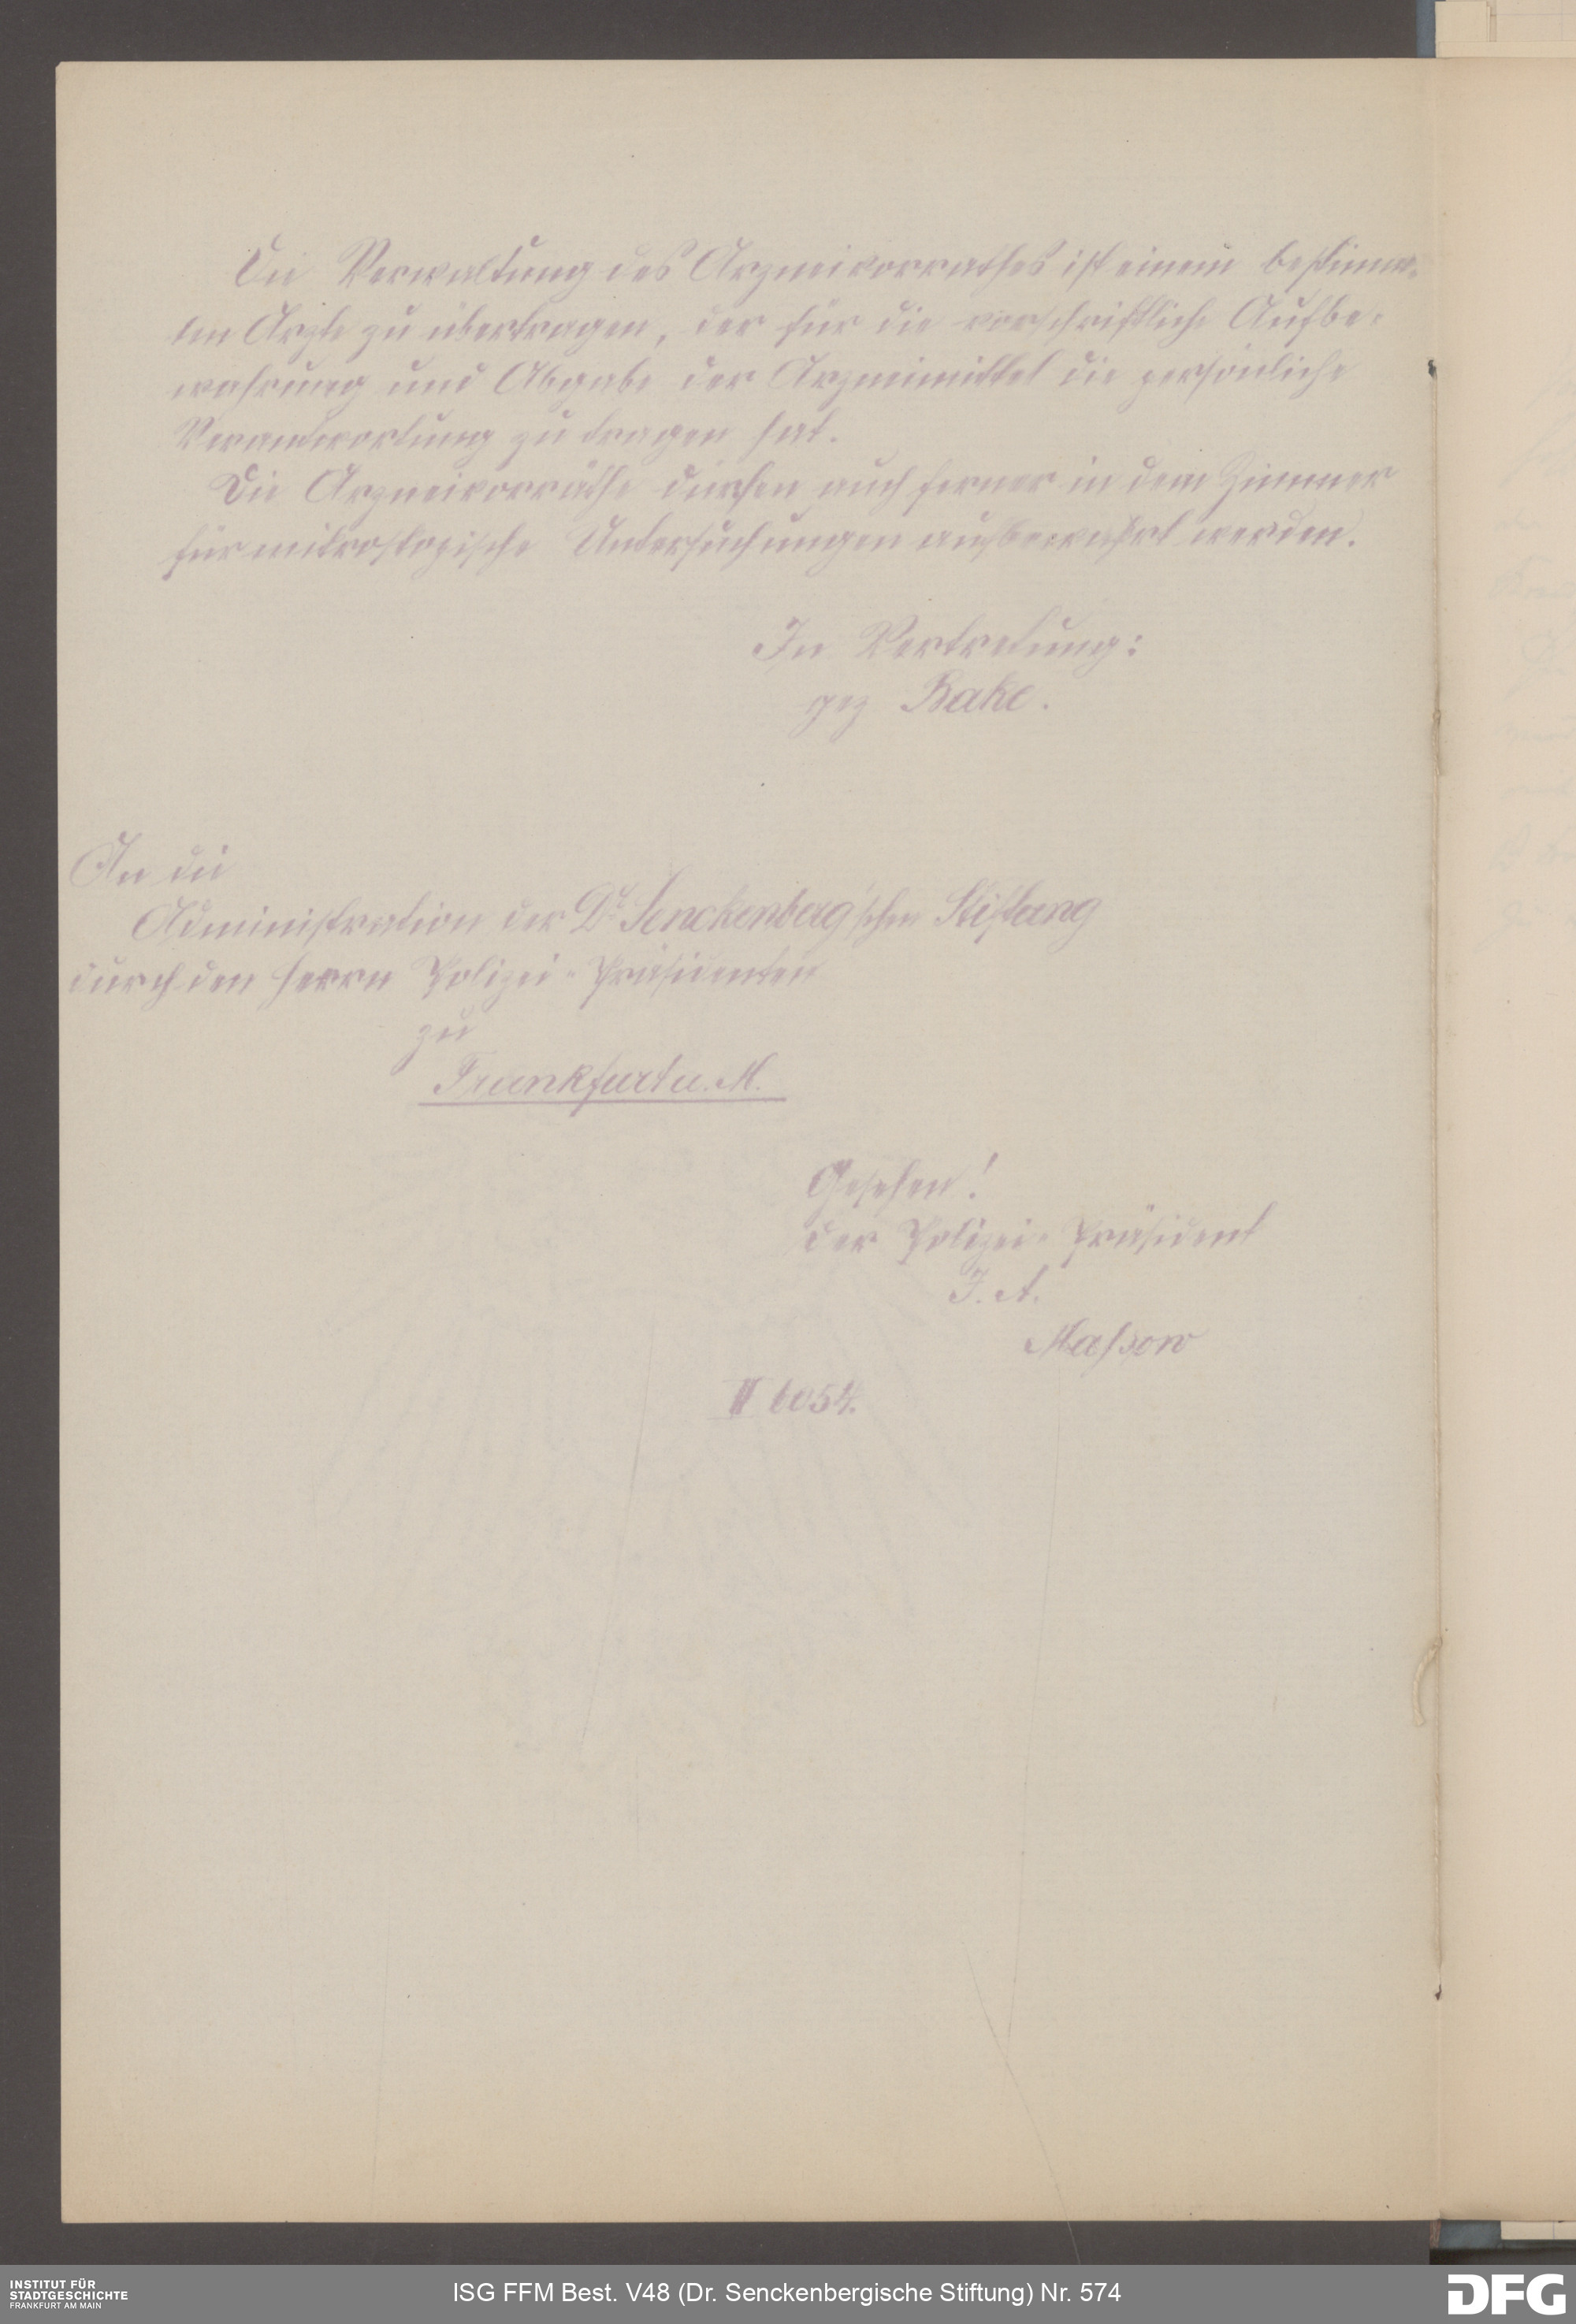 Die Verwaltung des Arzneivorrathes ist einem bestimm-
ten Arzte zu übertragen, der für die vorschriftliche Aufbe-
wahrung und Abgabe der Arzneimittel die persönliche
Verantwortung zu tragen hat.
Die Arzneivorräthe dürfen auch ferner in dem Zimmer
für mikroskopische Untersuchungen aufbewahrt werden.
In Vertretung:
gez Bake.
An die
Administration der Dr. Senckenberg'schen Stiftung
durch den Herrn Polizei-Präsidenten
zu
Frankfurt a. M.
Gesehen!
der Polizei-Präsident
J. A.
Massow
INSTITUT FÜR
STADTGESCHICHTE
FRANKFURT AM MAIN
ISG FFM Best. V48 (Dr. Senckenbergische Stiftung) Nr. 574
DFG